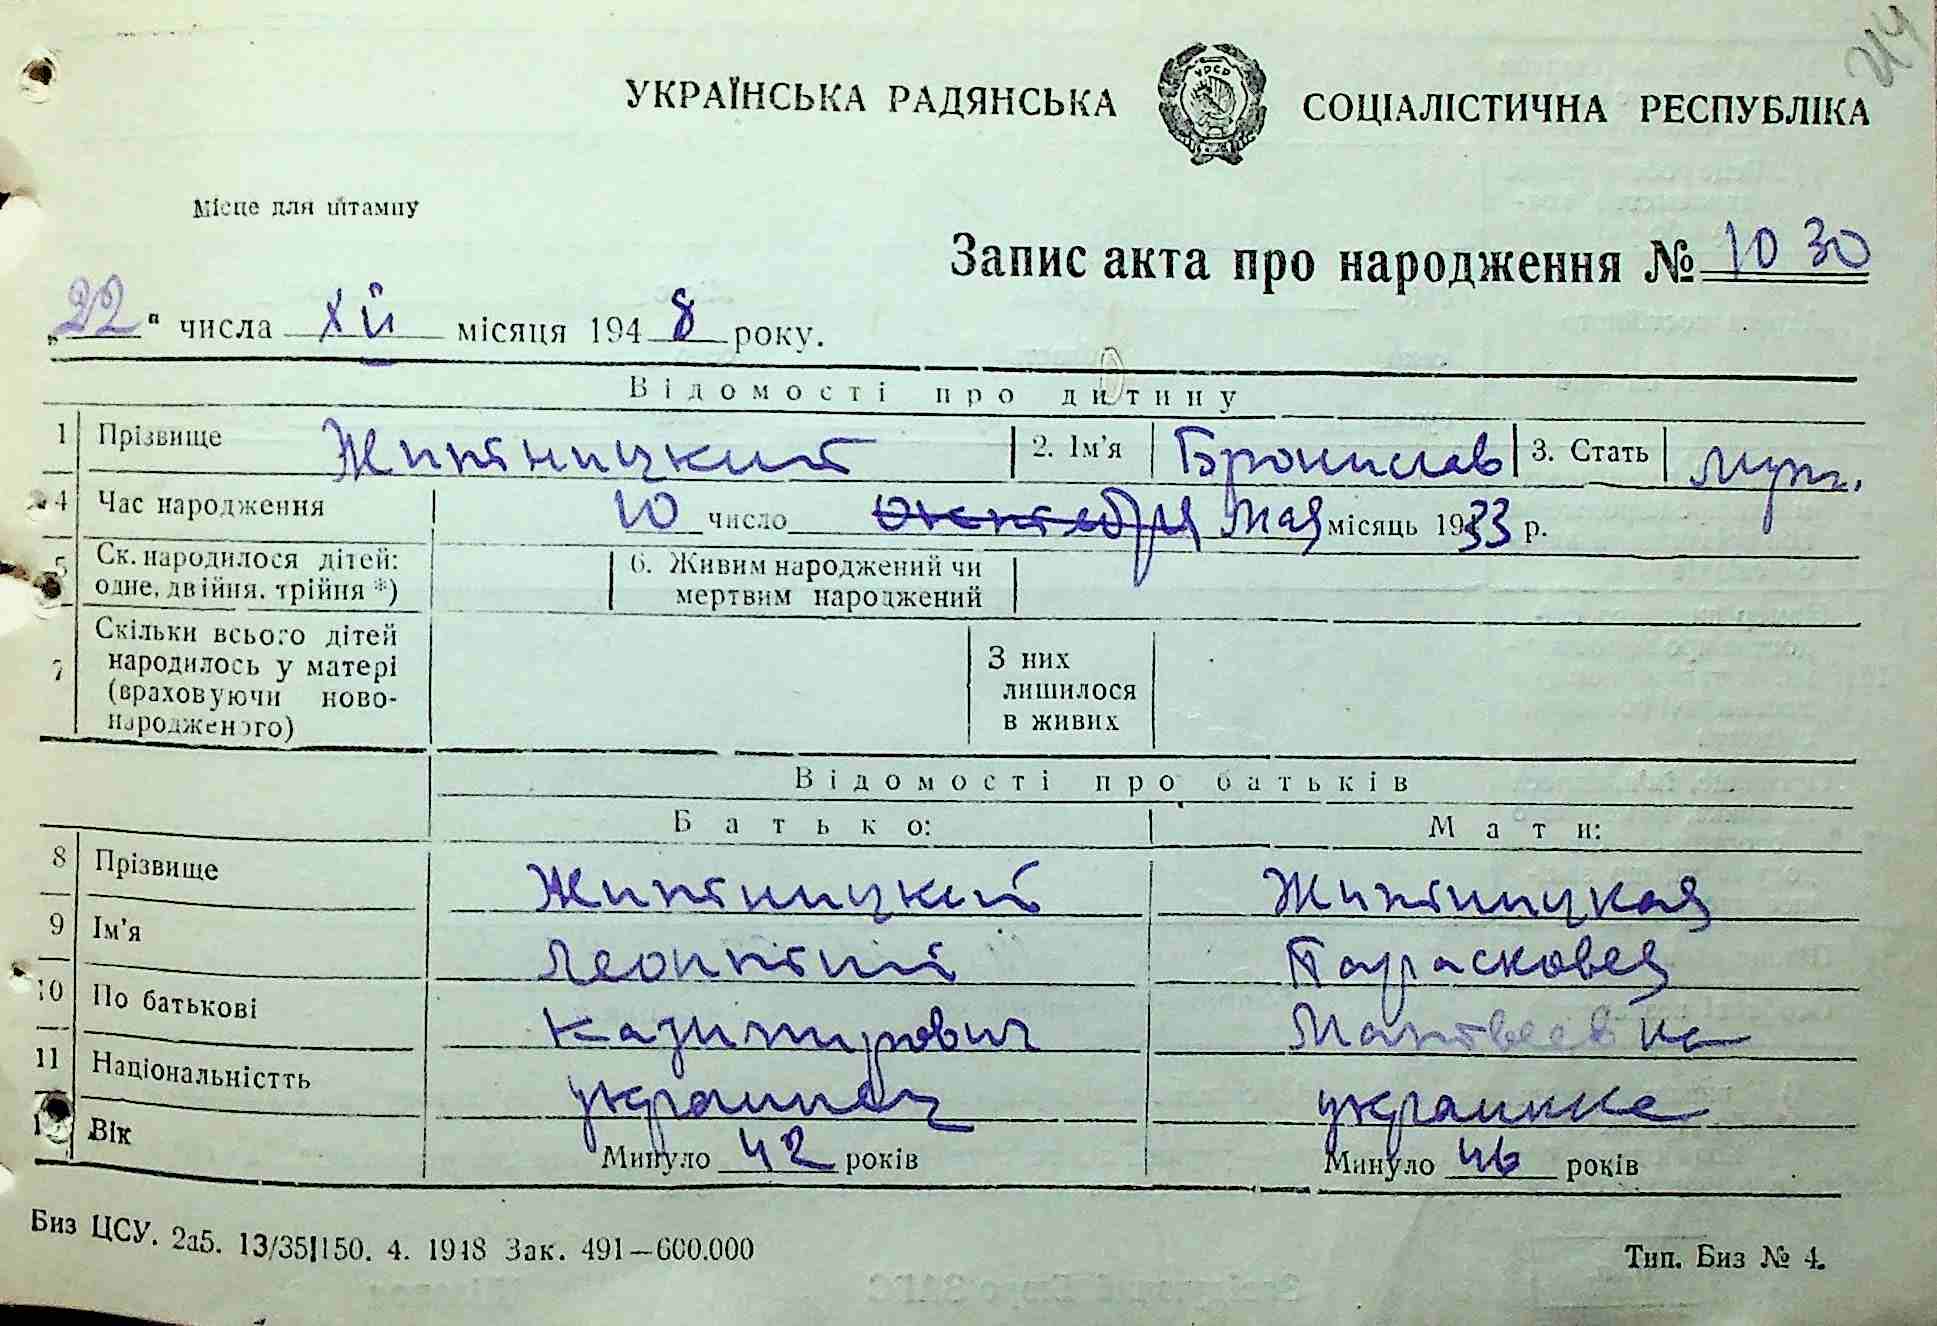 214
УКРАЇНСЬКА РАДЯНСЬКА СОЦІАЛІСТИЧНА РЕСПУБЛІКА
УРСР
Місце для штампу
Запис акта про народження № 1030
„22“ числа XII місяця 1948 року.
Відомості про дитину
1 Прізвище Житницкий 2. Ім'я Бронислав 3. Стать муж.
4 Час народження 10 число октября мая місяць 1933 р.
5 Ск. народилося дітей: одне, двійня, трійня *) 6. Живим народжений чи мертвим народжений
7 Скільки всього дітей народилось у матері (враховуючи ново-народженого) З них лишилося в живих
Відомості про батьків
Батько: Мати:
8 Прізвище Житницкий Житницкая
9 Ім'я Леонтий Парасковея
10 По батькові Казимирович Матвеевна
11 Національністть украинец украинка
Вік Минуло 42 років Минуло 46 років
Биз ЦСУ. 2а5. 13/35 150. 4. 1948 Зак. 491—600.000 Тип. Биз № 4.